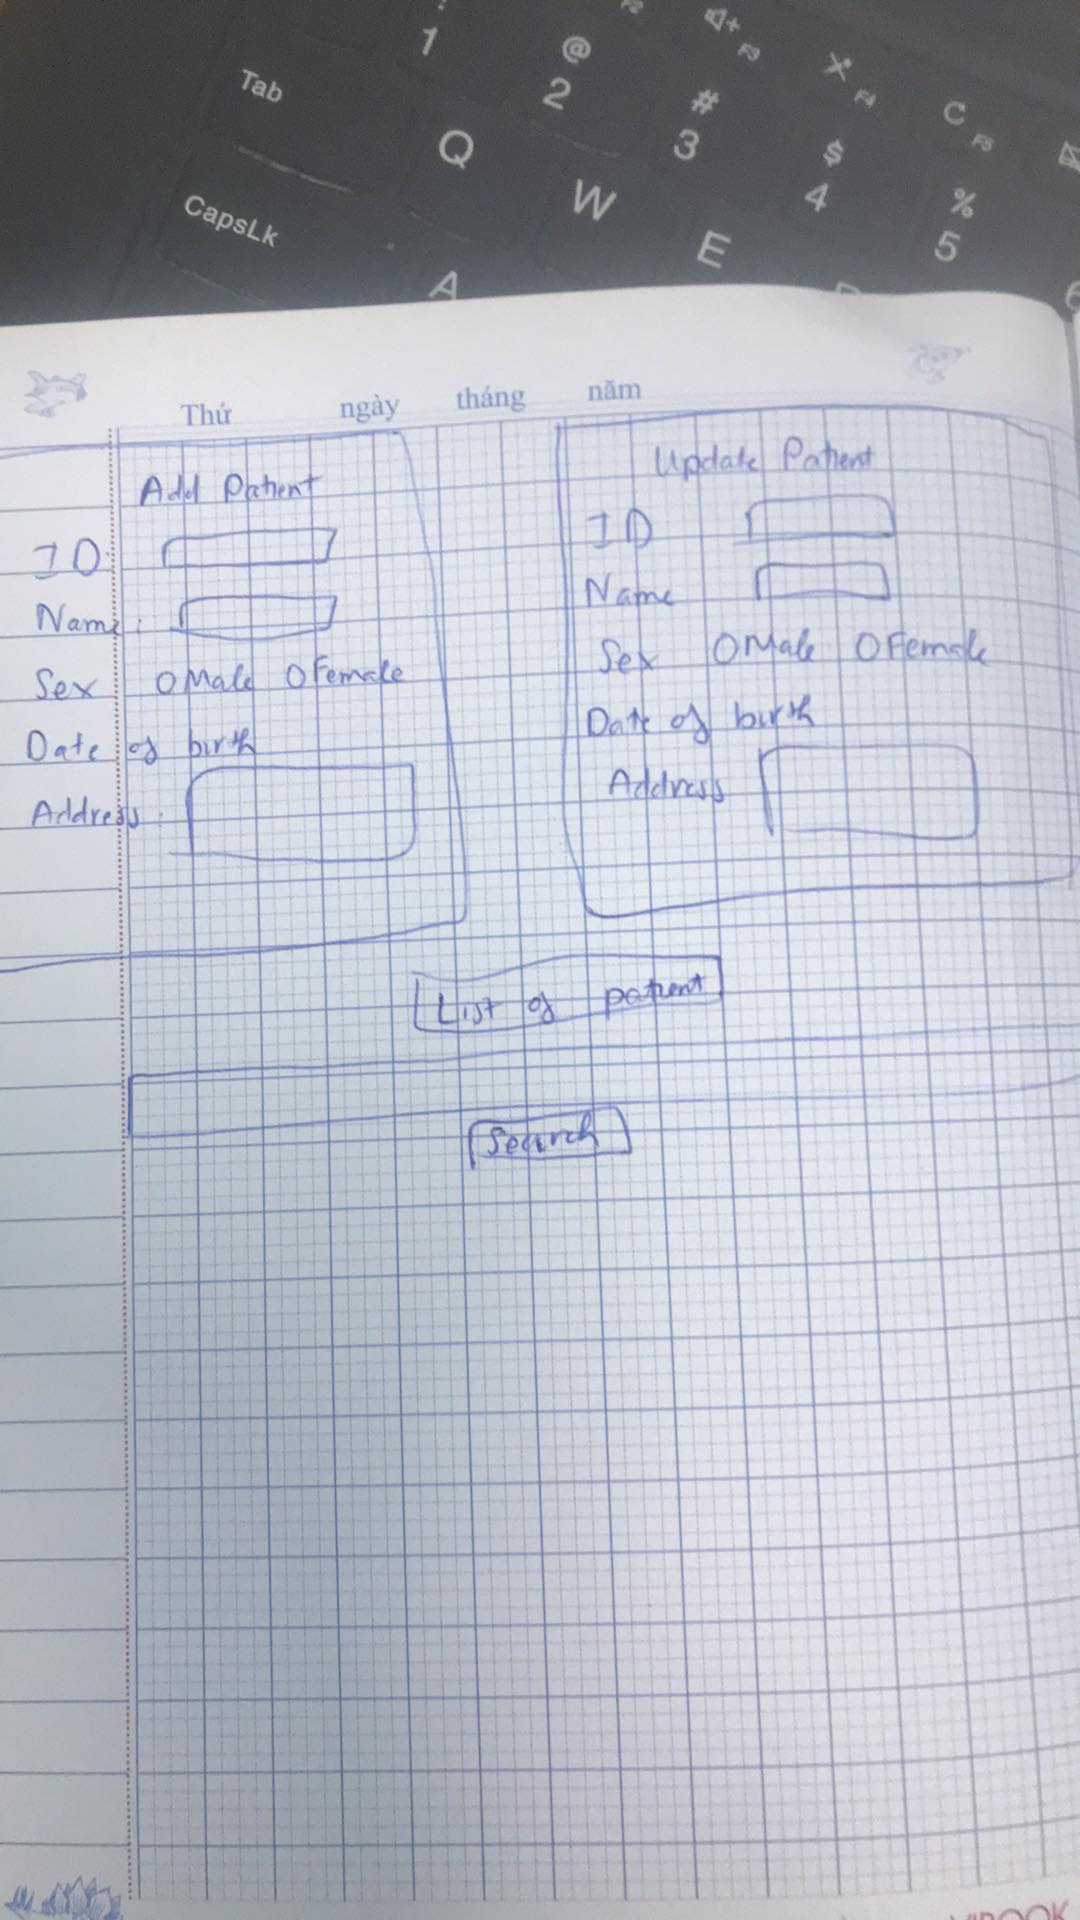 1 @ 2 # 3 $ 4 % 5 6
F3 F4 F5
Tab Q W E
CapsLk A
Thứ ngày tháng năm
Add Patient
ID:
Name:
Sex O Male O Female
Date of birth
Address:
Update Patient
ID
Name
Sex O Male O Female
Date of birth
Address
List of patient
Search